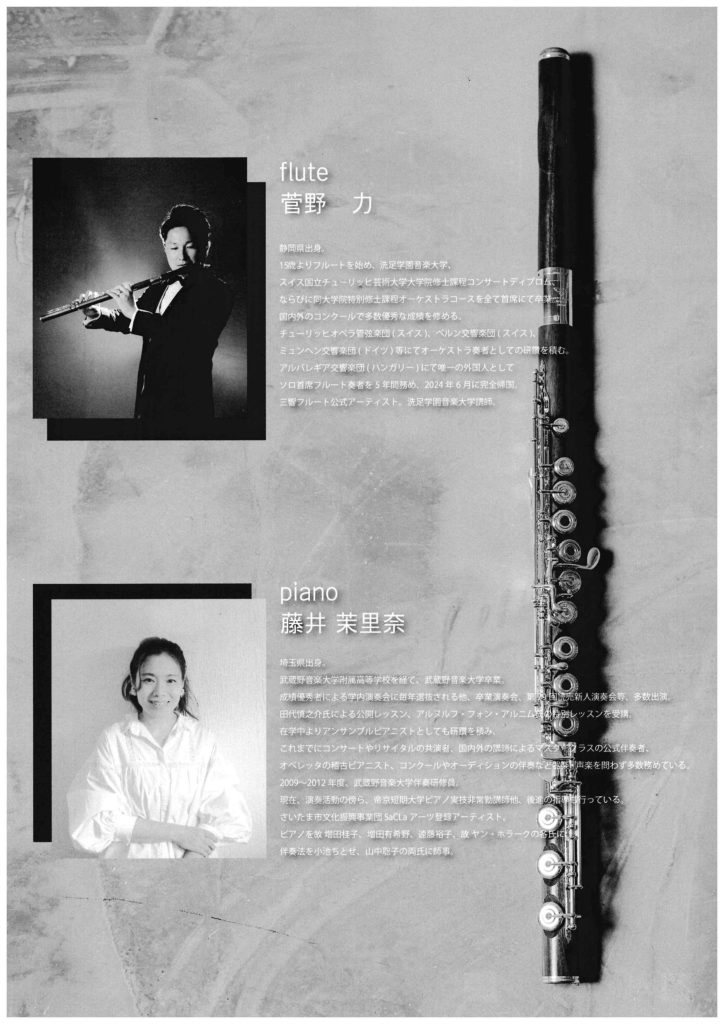 flute
菅野 力
静岡県出身。
15歳よりフルートを始め、洗足学園音楽大学、
スイス国立チューリッヒ芸術大学大学院修士課程コンサートディプロム、
ならびに同大学院特別修士課程オーケストラコースを全て首席にて卒業。
国内外のコンクールで多数優秀な成績を修める。
チューリッヒオペラ管弦楽団 ( スイス )、ベルン交響楽団 ( スイス )、
ミュンヘン交響楽団 ( ドイツ ) 等にてオーケストラ奏者としての研鑽を積む。
アルバレギア交響楽団 ( ハンガリー ) にて唯一の外国人として
ソロ首席フルート奏者を 5 年間務め、2024 年 6 月に完全帰国。
三響フルート公式アーティスト。洗足学園音楽大学講師。
piano
藤井 茉里奈
埼玉県出身。
武蔵野音楽大学附属高等学校を経て、武蔵野音楽大学卒業。
成績優秀者による学内演奏会に毎年選抜される他、卒業演奏会、第 回読売新人演奏会等、多数出演。
田代慎之介氏による公開レッスン、アルヌルフ・フォン・アルニム氏の特別レッスンを受講。
在学中よりアンサンブルピアニストとしても研鑽を積み、
これまでにコンサートやリサイタルの共演者、国内外の講師によるマスタークラスの公式伴奏者、
オペレッタの稽古ピアニスト、コンクールやオーディションの伴奏など器楽・声楽を問わず多数務めている。
2009〜2012 年度、武蔵野音楽大学伴奏研修員。
現在、演奏活動の傍ら、帝京短期大学ピアノ実技非常勤講師他、後進の指導も行っている。
さいたま市文化振興事業団 SaCLa アーツ登録アーティスト。
ピアノを故 増田桂子、増田有希野、 裕子、故 ヤン・ホラークの各氏に、
伴奏法を小池ちとせ、山中聡子の両氏に師事。